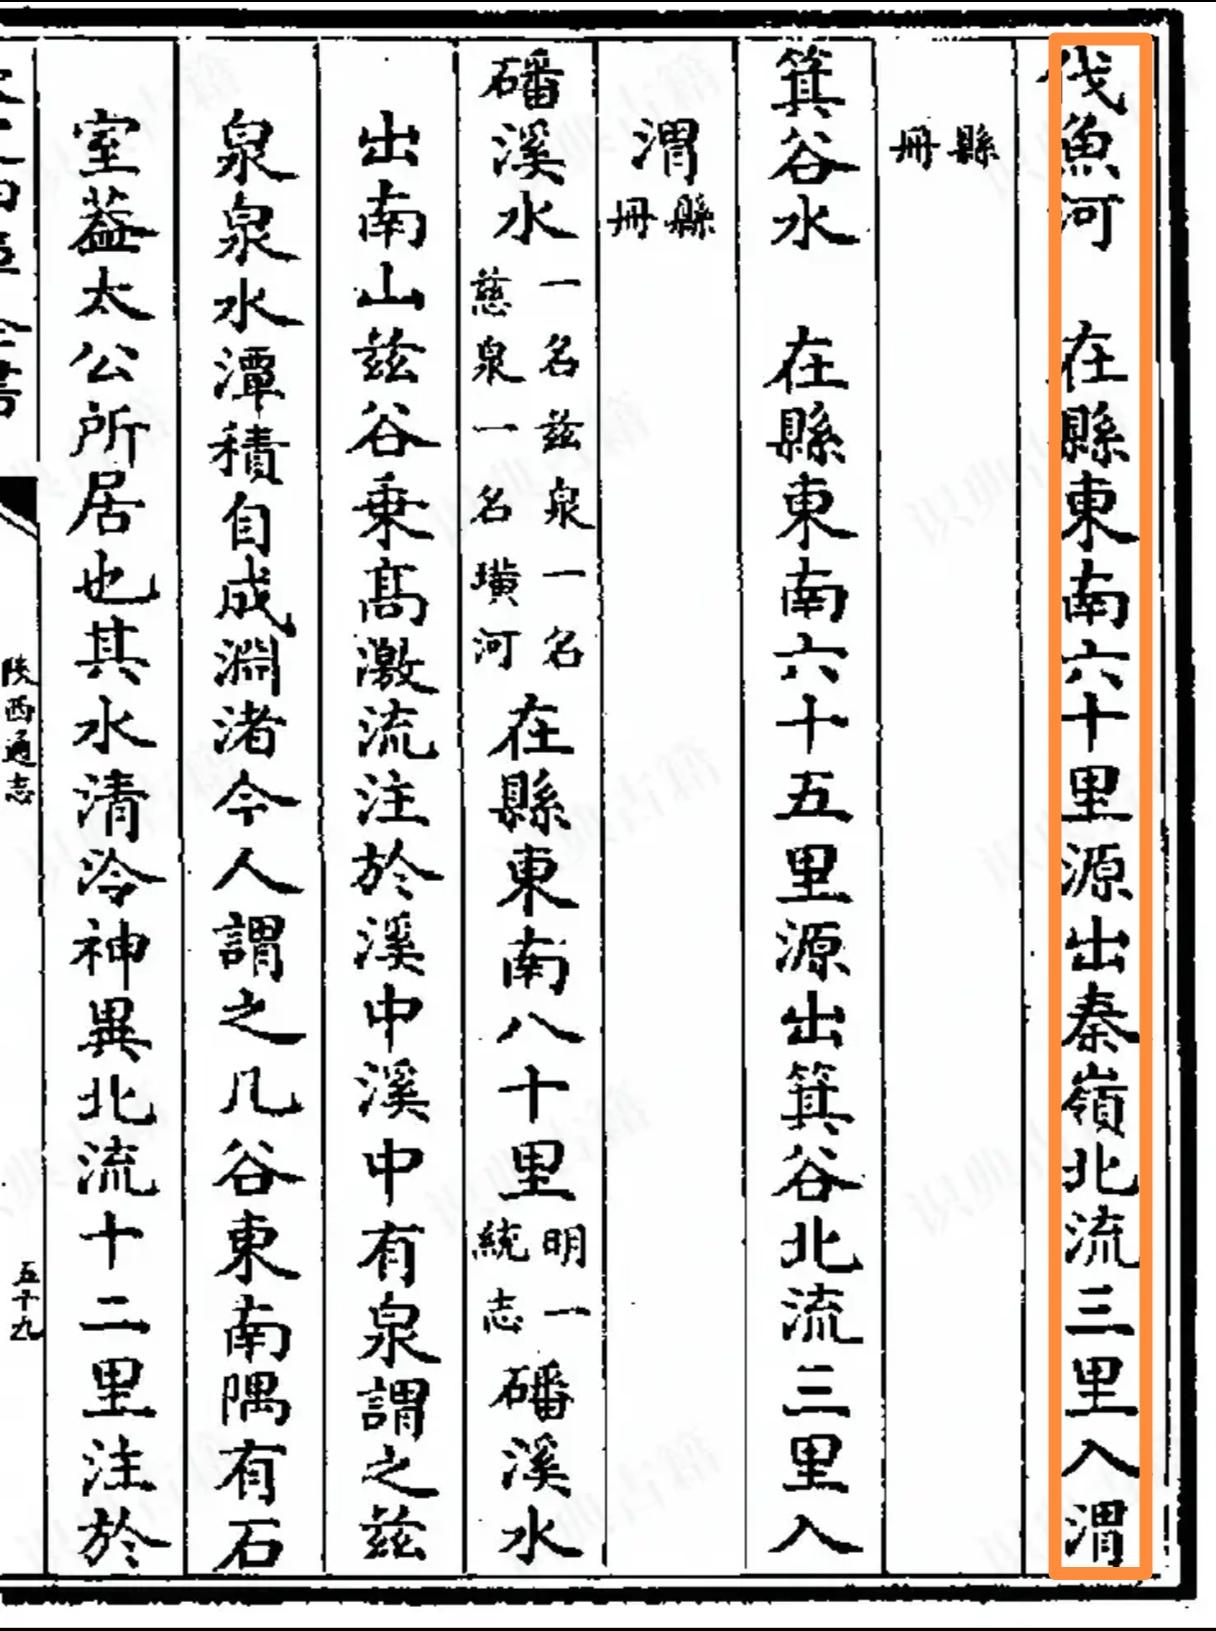 伐魚河　在縣東南六十里源出秦嶺北流三里入渭
縣冊
箕谷水　在縣東南六十五里源出箕谷北流三里入
渭縣冊
磻溪水一名兹泉一名慈泉一名璜河在縣東南八十里明一統志磻溪水
出南山兹谷乗髙激流注於溪中溪中有泉謂之兹
泉泉水潭積自成淵渚今人謂之凡谷東南隅有石
室葢太公所居也其水清泠神異北流十二里注於
陜西通志
五十九
识典古籍